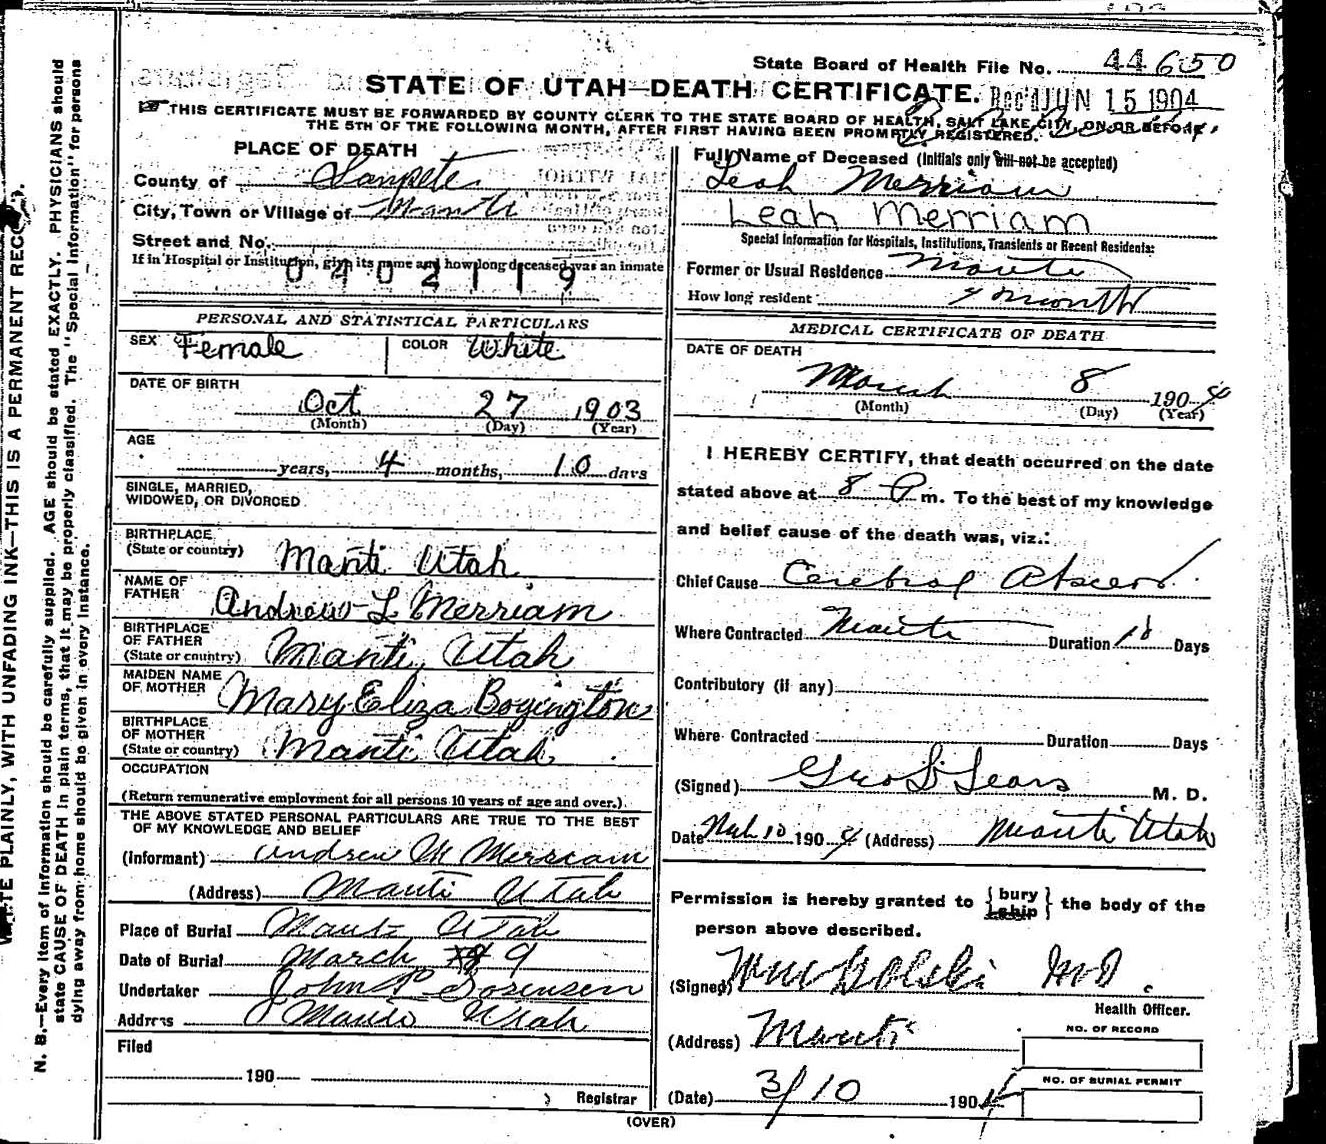 State Board of Health File No. 44650
STATE OF UTAH—DEATH CERTIFICATE.
Rec'd JUN 15 1904
☞ THIS CERTIFICATE MUST BE FORWARDED BY COUNTY CLERK TO THE STATE BOARD OF HEALTH, SALT LAKE CITY, ON OR BEFORE
THE 5TH OF THE FOLLOWING MONTH, AFTER FIRST HAVING BEEN PROMPTLY REGISTERED.
PLACE OF DEATH
County of Sanpete
City, Town or Village of Manti
Street and No.
If in Hospital or Institution, give its name and how long deceased was an inmate
0402119
PERSONAL AND STATISTICAL PARTICULARS
SEX Female COLOR White
DATE OF BIRTH
Oct 27 1903
(Month) (Day) (Year)
AGE
years, 4 months, 10 days
SINGLE, MARRIED,
WIDOWED, OR DIVORCED
BIRTHPLACE
(State or country) Manti Utah
NAME OF
FATHER Andrew L Merriam
BIRTHPLACE
OF FATHER
(State or country) Manti, Utah
MAIDEN NAME
OF MOTHER Mary Eliza Boyington
BIRTHPLACE
OF MOTHER
(State or country) Manti Utah
OCCUPATION
(Return remunerative employment for all persons 10 years of age and over.)
THE ABOVE STATED PERSONAL PARTICULARS ARE TRUE TO THE BEST
OF MY KNOWLEDGE AND BELIEF
(Informant) Andrew M Merriam
(Address) Manti Utah
Place of Burial Manti Utah
Date of Burial March 9
Undertaker John P. Sorensen
Address Manti Utah
Filed
190
Registrar
Full Name of Deceased (Initials only will not be accepted)
Leah Merriam
Leah Merriam
Special Information for Hospitals, Institutions, Transients or Recent Residents:
Former or Usual Residence Manti
How long resident months
MEDICAL CERTIFICATE OF DEATH
DATE OF DEATH
March 8 1904
(Month) (Day) (Year)
I HEREBY CERTIFY, that death occurred on the date
stated above at 8 P m. To the best of my knowledge
and belief cause of the death was, viz.:
Chief Cause Cerebral Abscess
Where Contracted Manti Duration 10 Days
Contributory (if any)
Where Contracted Duration Days
(Signed) Geo L Sears M. D.
Date Mch 10 1904 (Address) Manti Utah
Permission is hereby granted to {bury ship} the body of the
person above described.
(Signed) M.D.
Health Officer.
(Address) Manti
NO. OF RECORD
(Date) 3/10 1904
NO. OF BURIAL PERMIT
(OVER)
WRITE PLAINLY, WITH UNFADING INK—THIS IS A PERMANENT RECORD.
N. B.—Every item of information should be carefully supplied. AGE should be stated EXACTLY. PHYSICIANS should
state CAUSE OF DEATH in plain terms, that it may be properly classified. The "Special Information" for persons
dying away from home should be given in every instance.